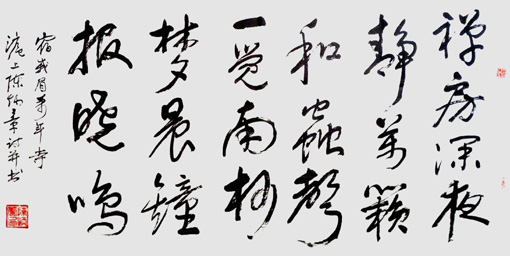 禅房深夜
静万籁
和蟲聲
一觉南柯
梦晨鐘
报晓鸣
宿峨眉万年寺
沪上陈诗并书